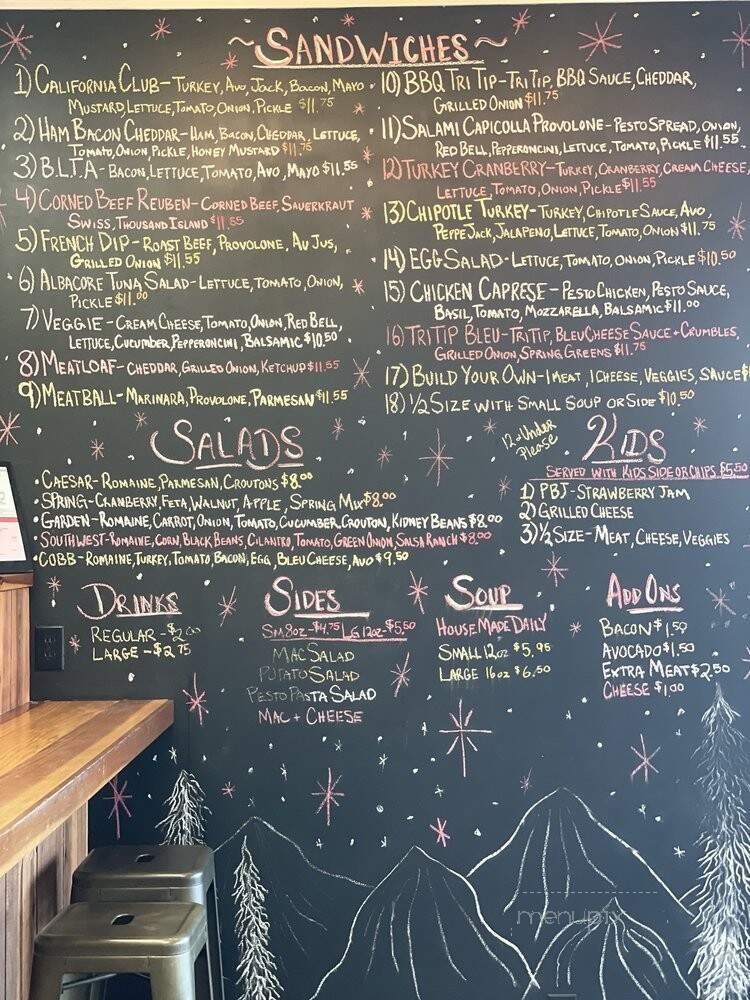 ~SANDWICHES~
1) CALIFORNIA CLUB - TURKEY, AVO, JACK, BACON, MAYO
MUSTARD, LETTUCE, TOMATO, ONION, PICKLE $11.75
2) HAM BACON CHEDDAR - HAM, BACON, CHEDDAR, LETTUCE,
TOMATO, ONION, PICKLE, HONEY MUSTARD $11.75
3) B.L.T.A - BACON, LETTUCE, TOMATO, AVO, MAYO $11.55
4) CORNED BEEF REUBEN - CORNED BEEF, SAUERKRAUT
SWISS, THOUSAND ISLAND $11.55
5) FRENCH DIP - ROAST BEEF, PROVOLONE, AU JUS,
GRILLED ONION $11.55
6) ALBACORE TUNA SALAD - LETTUCE, TOMATO, ONION,
PICKLE $11.00
7) VEGGIE - CREAM CHEESE, TOMATO, ONION, RED BELL,
LETTUCE, CUCUMBER, PEPPERONCINI, BALSAMIC $10.50
8) MEATLOAF - CHEDDAR, GRILLED ONION, KETCHUP $11.55
9) MEATBALL - MARINARA, PROVOLONE, PARMESAN $11.55
10) BBQ TRI TIP - TRI TIP, BBQ SAUCE, CHEDDAR,
GRILLED ONION $11.75
11) SALAMI CAPICOLLA PROVOLONE - PESTO SPREAD, ONION,
RED BELL, PEPPERONCINI, LETTUCE, TOMATO, PICKLE $11.55
12) TURKEY CRANBERRY - TURKEY, CRANBERRY, CREAM CHEESE,
LETTUCE, TOMATO, ONION, PICKLE $11.55
13) CHIPOTLE TURKEY - TURKEY, CHIPOTLE SAUCE, AVO,
PEPPE JACK, JALAPENO, LETTUCE, TOMATO, ONION $11.75
14) EGG SALAD - LETTUCE, TOMATO, ONION, PICKLE $10.50
15) CHICKEN CAPRESE - PESTO CHICKEN, PESTO SAUCE,
BASIL, TOMATO, MOZZARELLA, BALSAMIC $11.00
16) TRITIP BLEU - TRITIP, BLEU CHEESE SAUCE + CRUMBLES,
GRILLED ONION, SPRING GREENS $11.75
17) BUILD YOUR OWN - 1 MEAT, 1 CHEESE, VEGGIES, SAUCE $
18) 1/2 SIZE WITH SMALL SOUP OR SIDE $10.50
SALADS
• CAESAR - ROMAINE, PARMESAN, CROUTONS $8.00
• SPRING - CRANBERRY, FETA, WALNUT, APPLE, SPRING MIX $8.00
• GARDEN - ROMAINE, CARROT, ONION, TOMATO, CUCUMBER, CROUTON, KIDNEY BEANS $8.00
• SOUTHWEST - ROMAINE, CORN, BLACK BEANS, CILANTRO, TOMATO, GREEN ONION, SALSA RANCH $8.00
• COBB - ROMAINE, TURKEY, TOMATO, BACON, EGG, BLEU CHEESE, AVO $9.50
12 & Under
Please
KIDS
SERVED WITH KIDS SIDE OR CHIPS $5.50
1) PBJ - STRAWBERRY JAM
2) GRILLED CHEESE
3) 1/2 SIZE - MEAT, CHEESE, VEGGIES
DRINKS
REGULAR - $2.00
LARGE - $2.75
SIDES
SM 8oz - $4.75 LG 12oz - $5.50
MAC SALAD
POTATO SALAD
PESTO PASTA SALAD
MAC + CHEESE
SOUP
HOUSE MADE DAILY
SMALL 12oz $5.95
LARGE 16oz $6.50
ADD ONS
BACON $1.50
AVOCADO $1.50
EXTRA MEAT $2.50
CHEESE $1.00
menupix